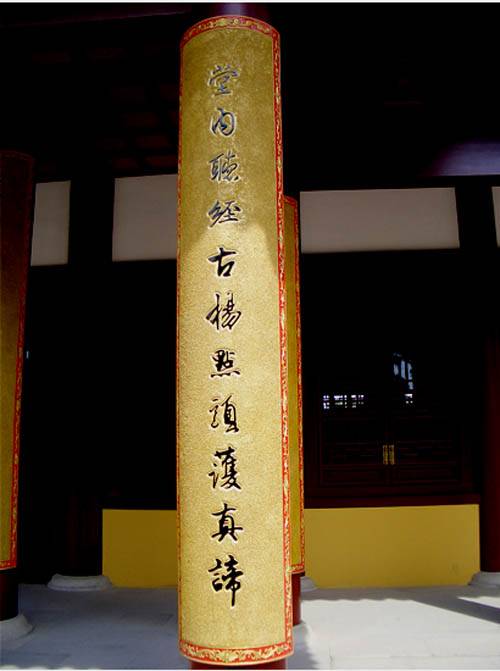 堂内聽經古楊點頭護真諦